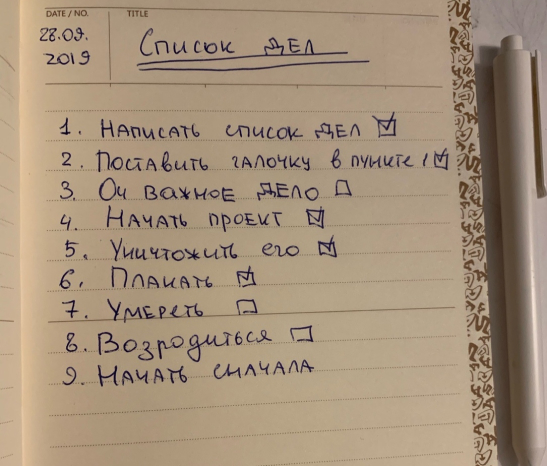 DATE / NO.
TITLE
28.09.
2019
Список дел
1. Написать список дел
2. Поставить галочку в пункте 1
3. Оч важное дело
4. Начать проект
5. Уничтожить его
6. Плакать
7. Умереть
8. Возродиться
9. Начать сначала